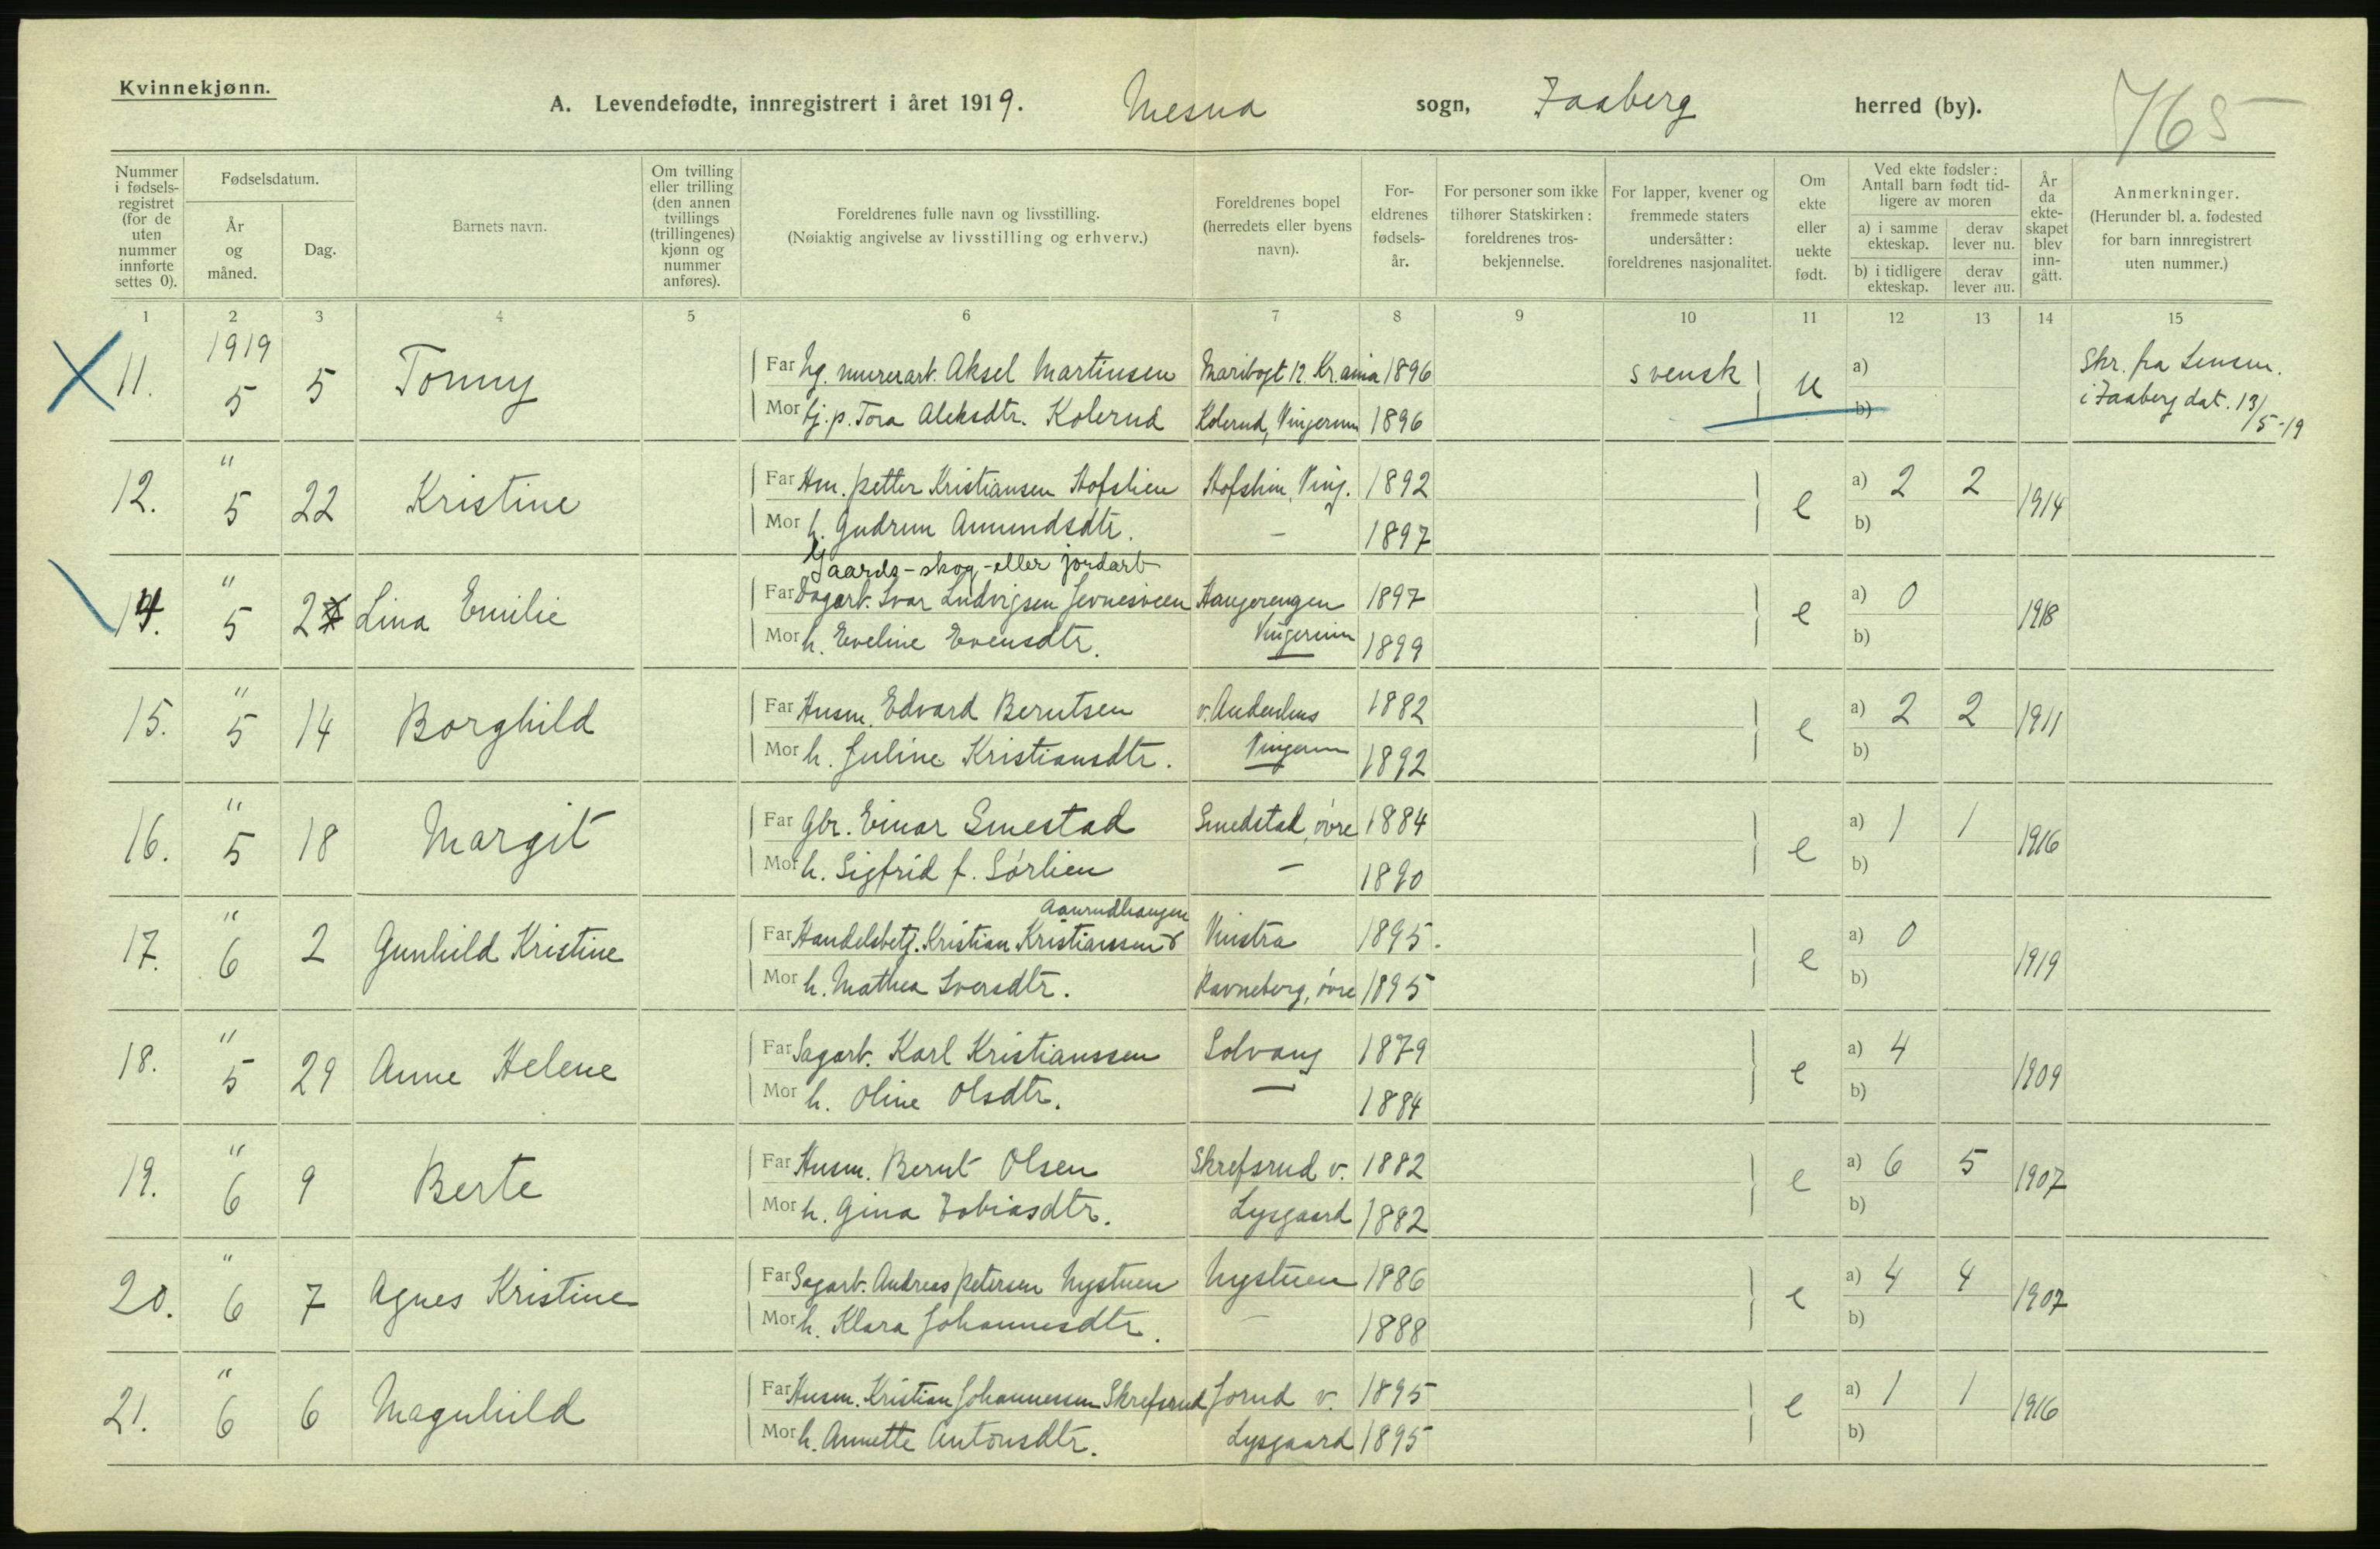 Kvinnekjønn.
A. Levendefødte, innregistrert i året 1919. Mesna sogn, Faaberg herred (by). 765
Nummer i fødsels- registret (for de uten nummer innførte settes 0).
Fødselsdatum.
År og måned.
Dag.
Barnets navn.
Om tvilling eller trilling (den annen tvillings (trillingenes) kjønn og nummer anføres).
Foreldrenes fulle navn og livsstilling.
(Nøiaktig angivelse av livsstilling og erhverv.)
Foreldrenes bopel (herredets eller byens navn).
For- eldrenes fødsels- år.
For personer som ikke tilhører Statskirken: foreldrenes tros- bekjennelse.
For lapper, kvener og fremmede staters undersåtter: foreldrenes nasjonalitet.
Om ekte eller uekte født.
Ved ekte fødsler: Antall barn født tid- ligere av moren
a) i samme ekteskap. derav lever nu.
b) i tidligere ekteskap. derav lever nu.
År da ekte- skapet blev inn- gått.
Anmerkninger.
(Herunder bl. a. fødested for barn innregistrert uten nummer.)
1 2 3 4 5 6 7 8 9 10 11 12 13 14 15
1919
11. 5 5 Tonny
Far Ug. murerarb. Aksel Martinsen Maribogt 12. Kr.ania 1896 svensk u a)
Mor tj. p. Tora Aleksdtr. Kolerud Kolerud, Vingerum 1896 b)
Skr. fra Lensm.
i Faaberg dat. 13/5-19
12. " 5 22 Kristine
Far Hm. Petter Kristiansen Hofslien Hofslien, Ving. 1892 e a) 2 2 1914
Mor h. Gudrun Amundsdtr. - 1897 b)
Gaards-skog-eller jordarb
14. " 5 2 Lina Emilie
Far Dagarb. Ivar Ludvigsen Jevnesveen Haugerengen 1897 e a) 0 1918
Mor h. Eveline Evensdtr. Vingerum 1899 b)
15. " 5 14 Borghild
Far Husm. Edvard Berntsen 1882 e a) 2 2 1911
Mor h. Juline Kristiansdtr. Vingerum 1892 b)
16. " 5 18 Margit
Far Gbr. Einar Smestad Smedstad, øvre 1884 e a) 1 1 1916
Mor h. Sigfrid f. Sørlien - 1890 b)
Aanrudhaugen
17. " 6 2 Gunhild Kristine
Far Handelsbetj. Kristian Kristianssen Vinstra 1895. e a) 0 1919
Mor h. Mathea Iversdtr. Ravneberg, øvre 1895 b)
18. " 5 29 Anne Helene
Far Sagarb. Karl Kristianssen Solvang 1879 e a) 4 1909
Mor h. Oline Olsdtr. - 1884 b)
19. " 6 9 Berte
Far Husm. Bernt Olsen Skrefsrud v. 1882 e a) 6 5 1907
Mor h. Gina Tobiasdtr. Lysgaard 1882 b)
20. " 6 7 Agnes Kristine
Far Sagarb. Andreas Petersen Nystuen Nystuen 1886 e a) 4 4 1907
Mor h. Klara Johannesdtr. - 1888 b)
21. " 6 6 Magnhild
Far Husm. Kristian Johannessen Skrefsrud Jorud v. 1895 e a) 1 1 1916
Mor h. Annette Antonsdtr. Lysgaard 1895 b)